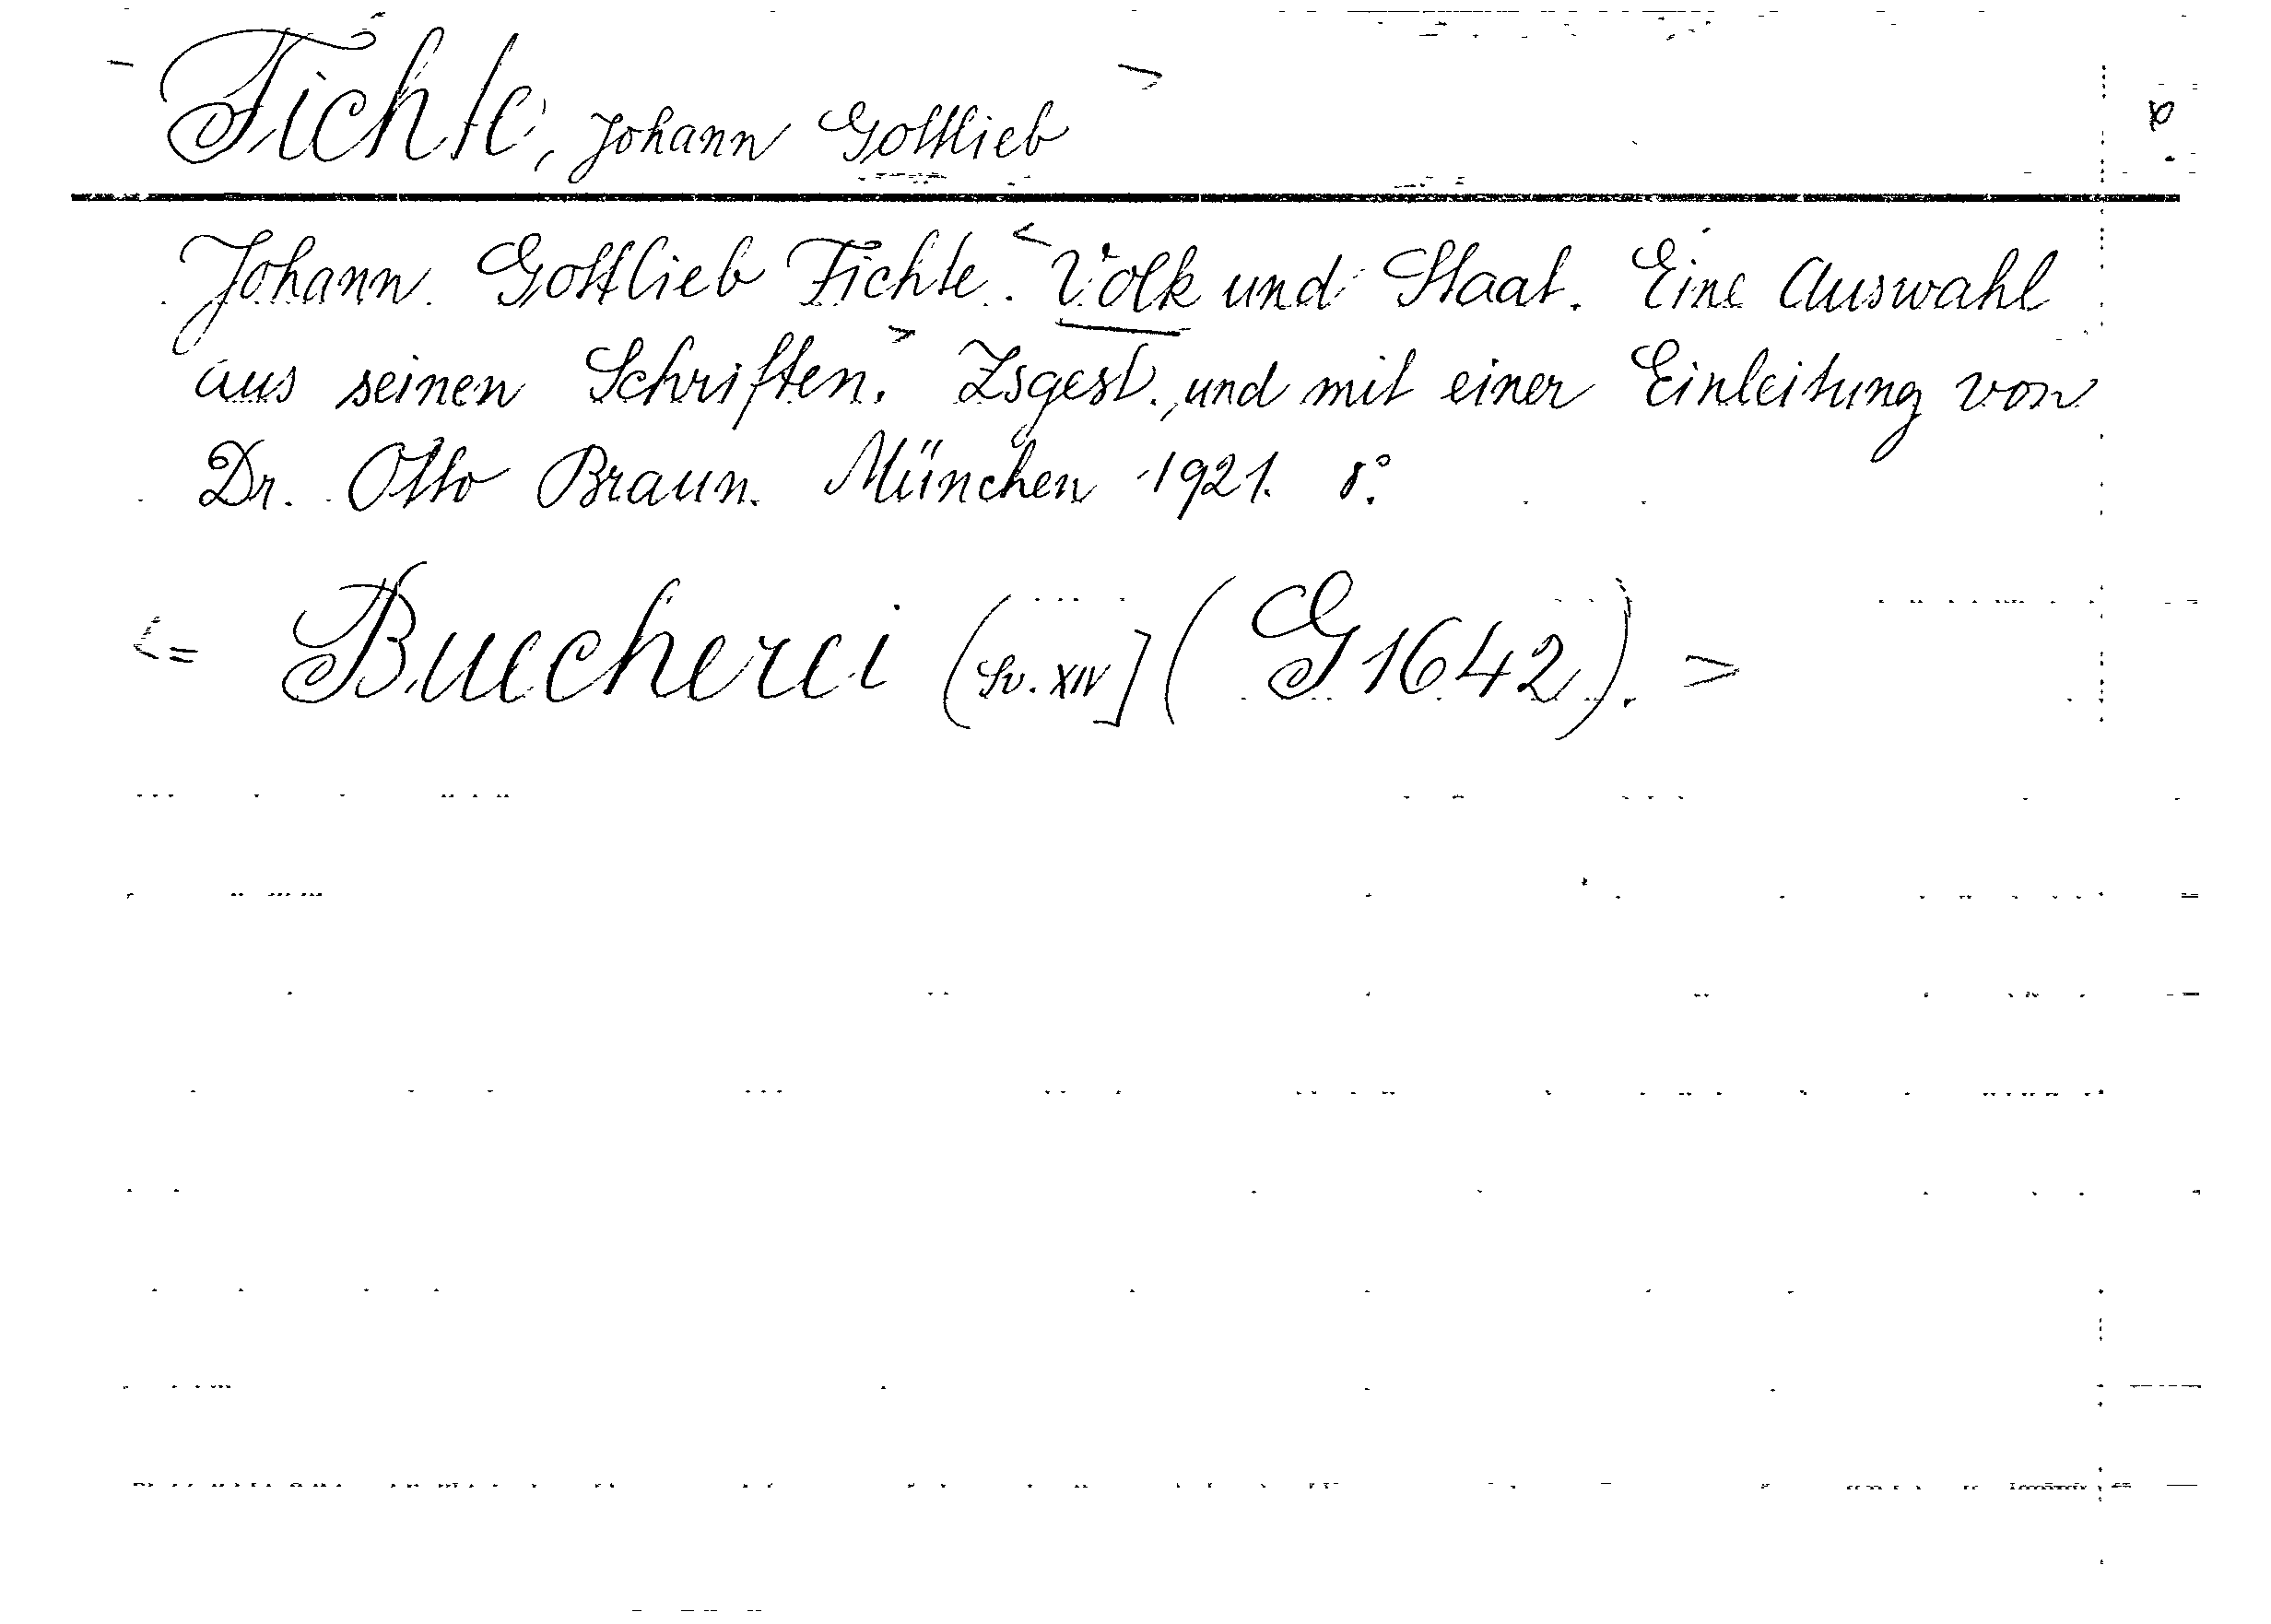 Fichte, Johann Gottlieb >
Johann Gottlieb Fichte. <Volk und Staat. Eine Auswahl
aus seinen Schriften.> Zsgest. und mit einer Einleitung von
Dr. Otto Braun. München 1921. 8°.
<= Buecherei (Sv. XIV] (G1642). >